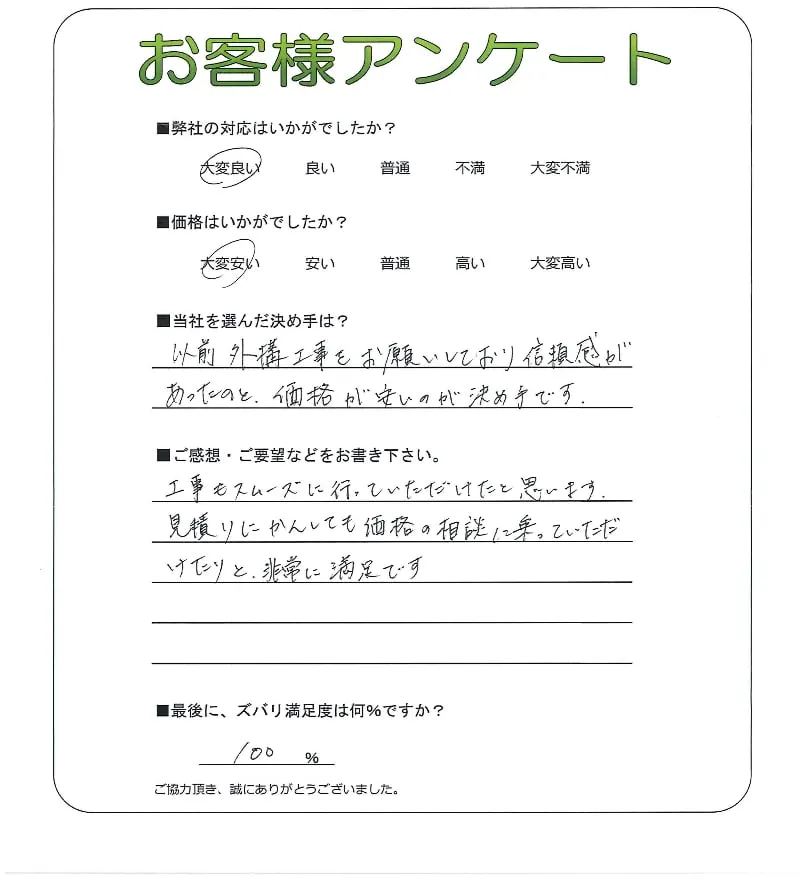 お客様アンケート
■弊社の対応はいかがでしたか？
大変良い 良い 普通 不満 大変不満
■価格はいかがでしたか？
大変安い 安い 普通 高い 大変高い
■当社を選んだ決め手は？
以前外構工事をお願いしており信頼感が
あったのと、価格が安いのが決め手です。
■ご感想・ご要望などをお書き下さい。
工事もスムーズに行っていただけたと思います。
見積りにかんしても価格の相談に乗っていただ
けたりと、非常に満足です
■最後に、ズバリ満足度は何％ですか？
100 %
ご協力頂き、誠にありがとうございました。